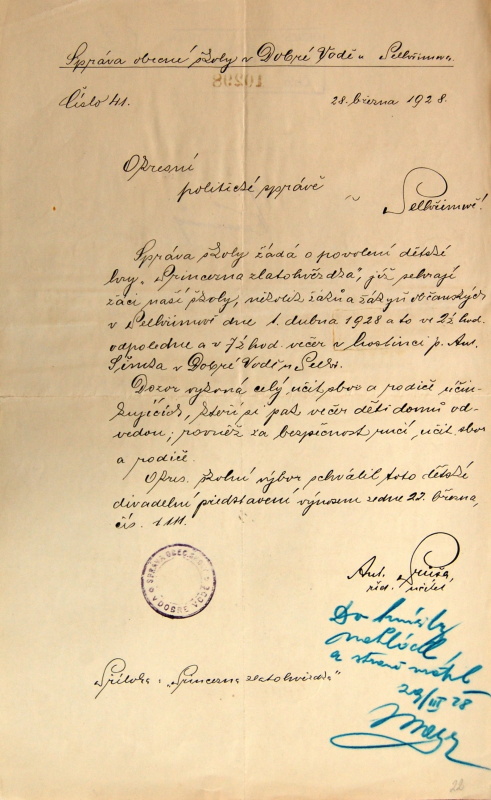 Správa obecné školy v Dobré Vodě u Pelhřimova.
10298
Číslo 41.
28. března 1928.
Okresní
politické správě
v
Pelhřimově!
Správa školy žádá o povolení dětské
hry „Princezna zlatohvězdka", již sehrají
žáci naší školy, několik žáků a žákyň občanských
v Pelhřimově dne 1. dubna 1928 a to ve 2½ hod.
odpoledne a v 7½ hod. večer v hostinci p. Ant.
Šimka v Dobré Vodě u Pelhř.
Dozor vykoná celý učit. sbor a rodiče účin-
kujících, kteří si pak večer děti domů od-
vedou; rovněž za bezpečnost ručí učit. sbor
a rodiče.
Okres. školní výbor schválil toto dětské
divadelní představení výnosem ze dne 22. března,
čís. 1111.
SPRÁVA OBEC. V DOBRÉ VODĚ
Ant.
říd. učitel
Příloha: „Princezna zlatohvězdka"
29/III 28
22